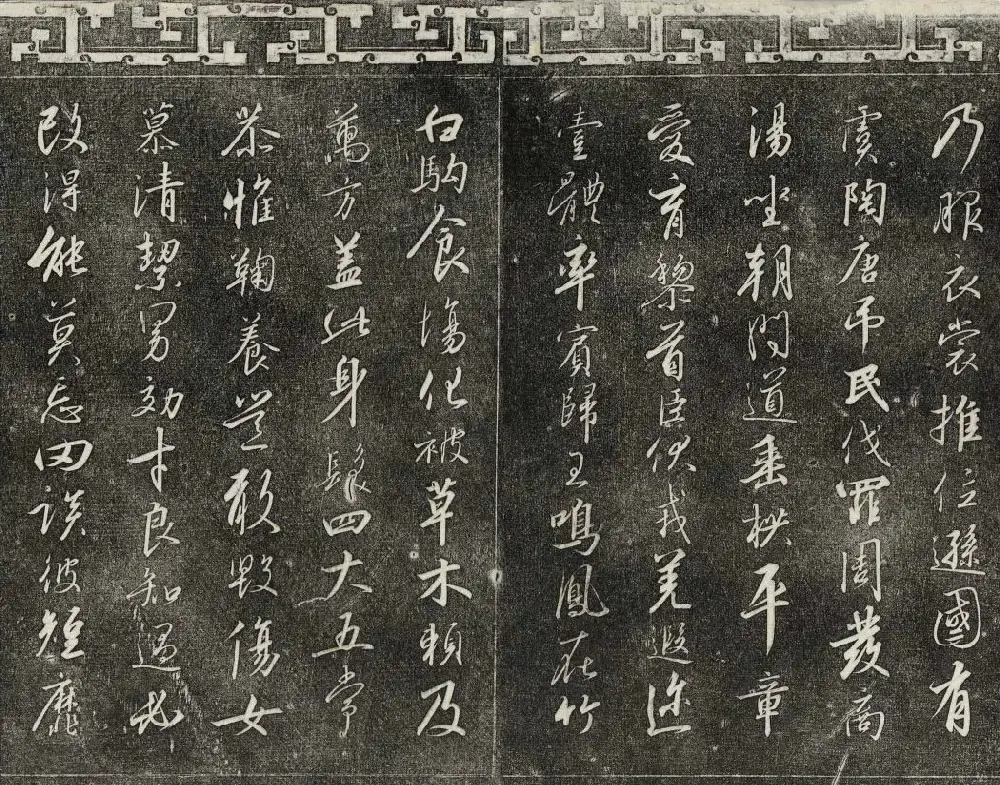 乃服衣裳推位遜國有
虞陶唐吊民伐罪周發商
湯坐朝問道垂拱平章
愛育黎首臣伏戎羌遐迩
壹體率賓歸王鳴鳳在竹
白駒食場化被草木賴及
萬方盖此身髮四大五常
恭惟鞠養豈敢毀傷女
慕清絜男効才良知過必
改得能莫忘罔談彼短靡